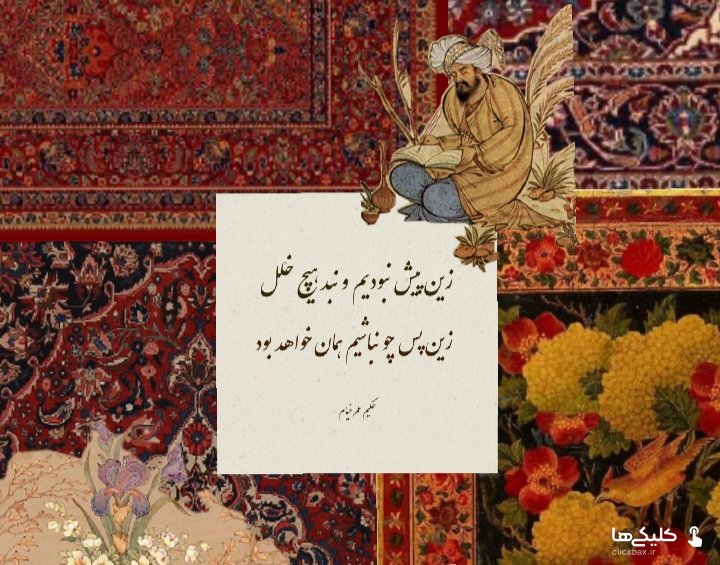 زین پیش نبودیم و نبد هیچ خلل
زین پس چو نباشیم همان خواهد بود
حکیم عمر خیام
کلیکی‌ها
clickbax.ir